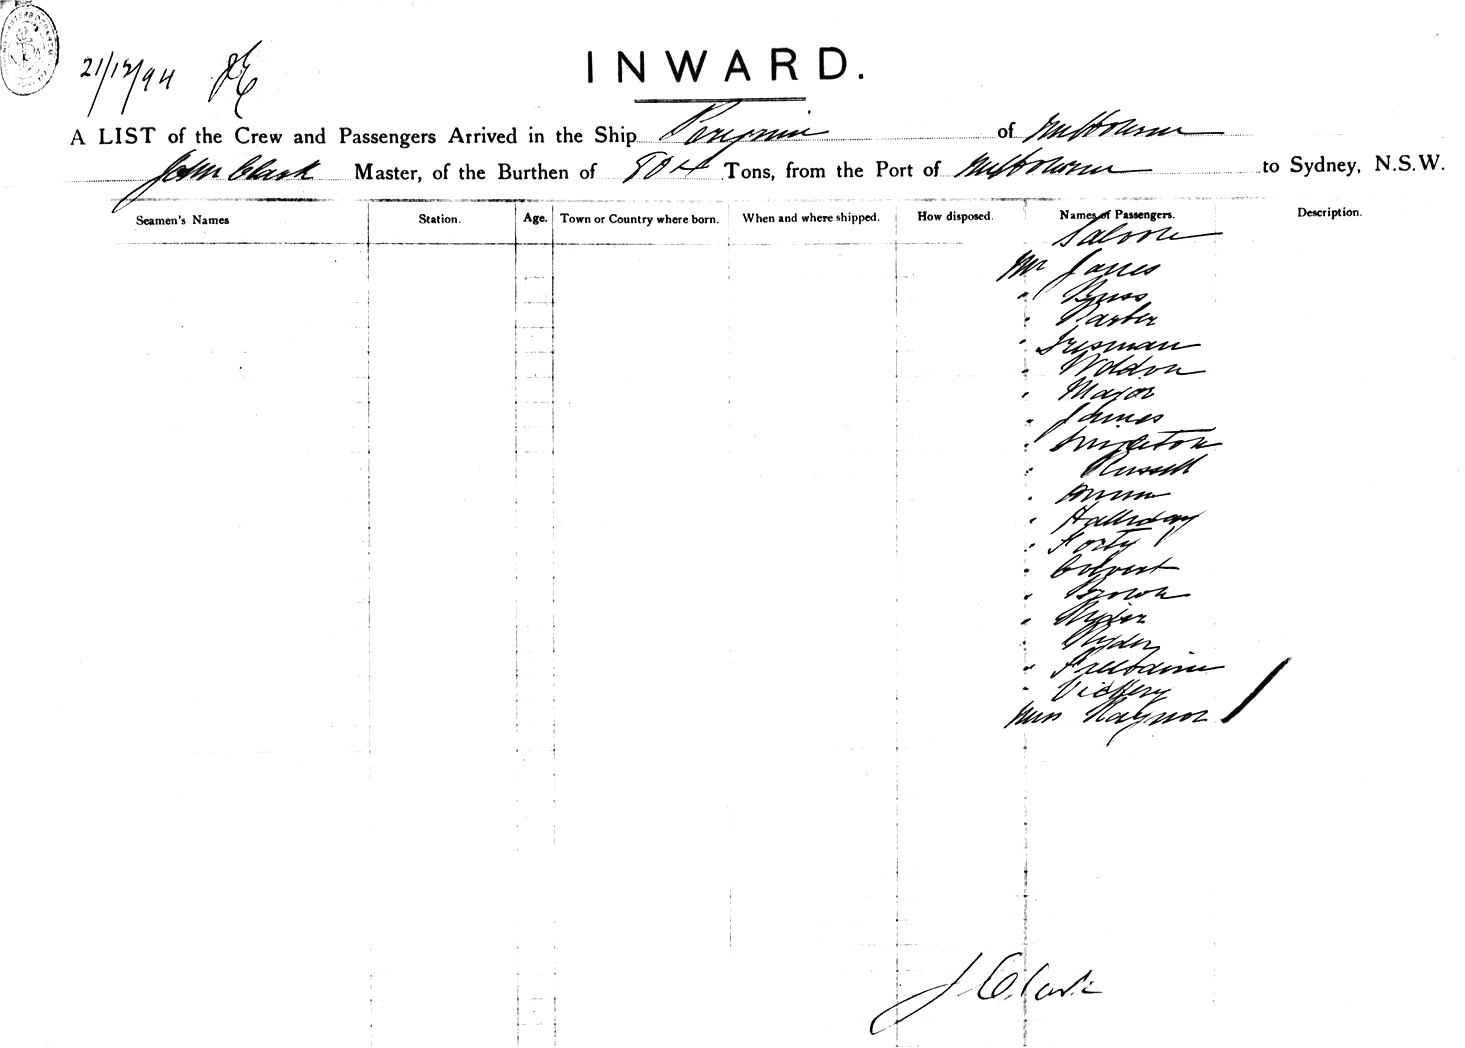 21/12/94
INWARD.
A LIST of the Crew and Passengers Arrived in the Ship of Melbourne
John Clark Master, of the Burthen of 904 Tons, from the Port of Melbourne to Sydney, N.S.W.
Seamen's Names Station. Age. Town or Country where born. When and where shipped. How disposed. Names of Passengers. Description.
Saloon
Mr
" Buss
" Barber
" Weldon
" Major
" James
" Singleton
" Russell
" Halliday
" Forty
" Brown
" Ryder
" Vickery
Raynor
J Clark